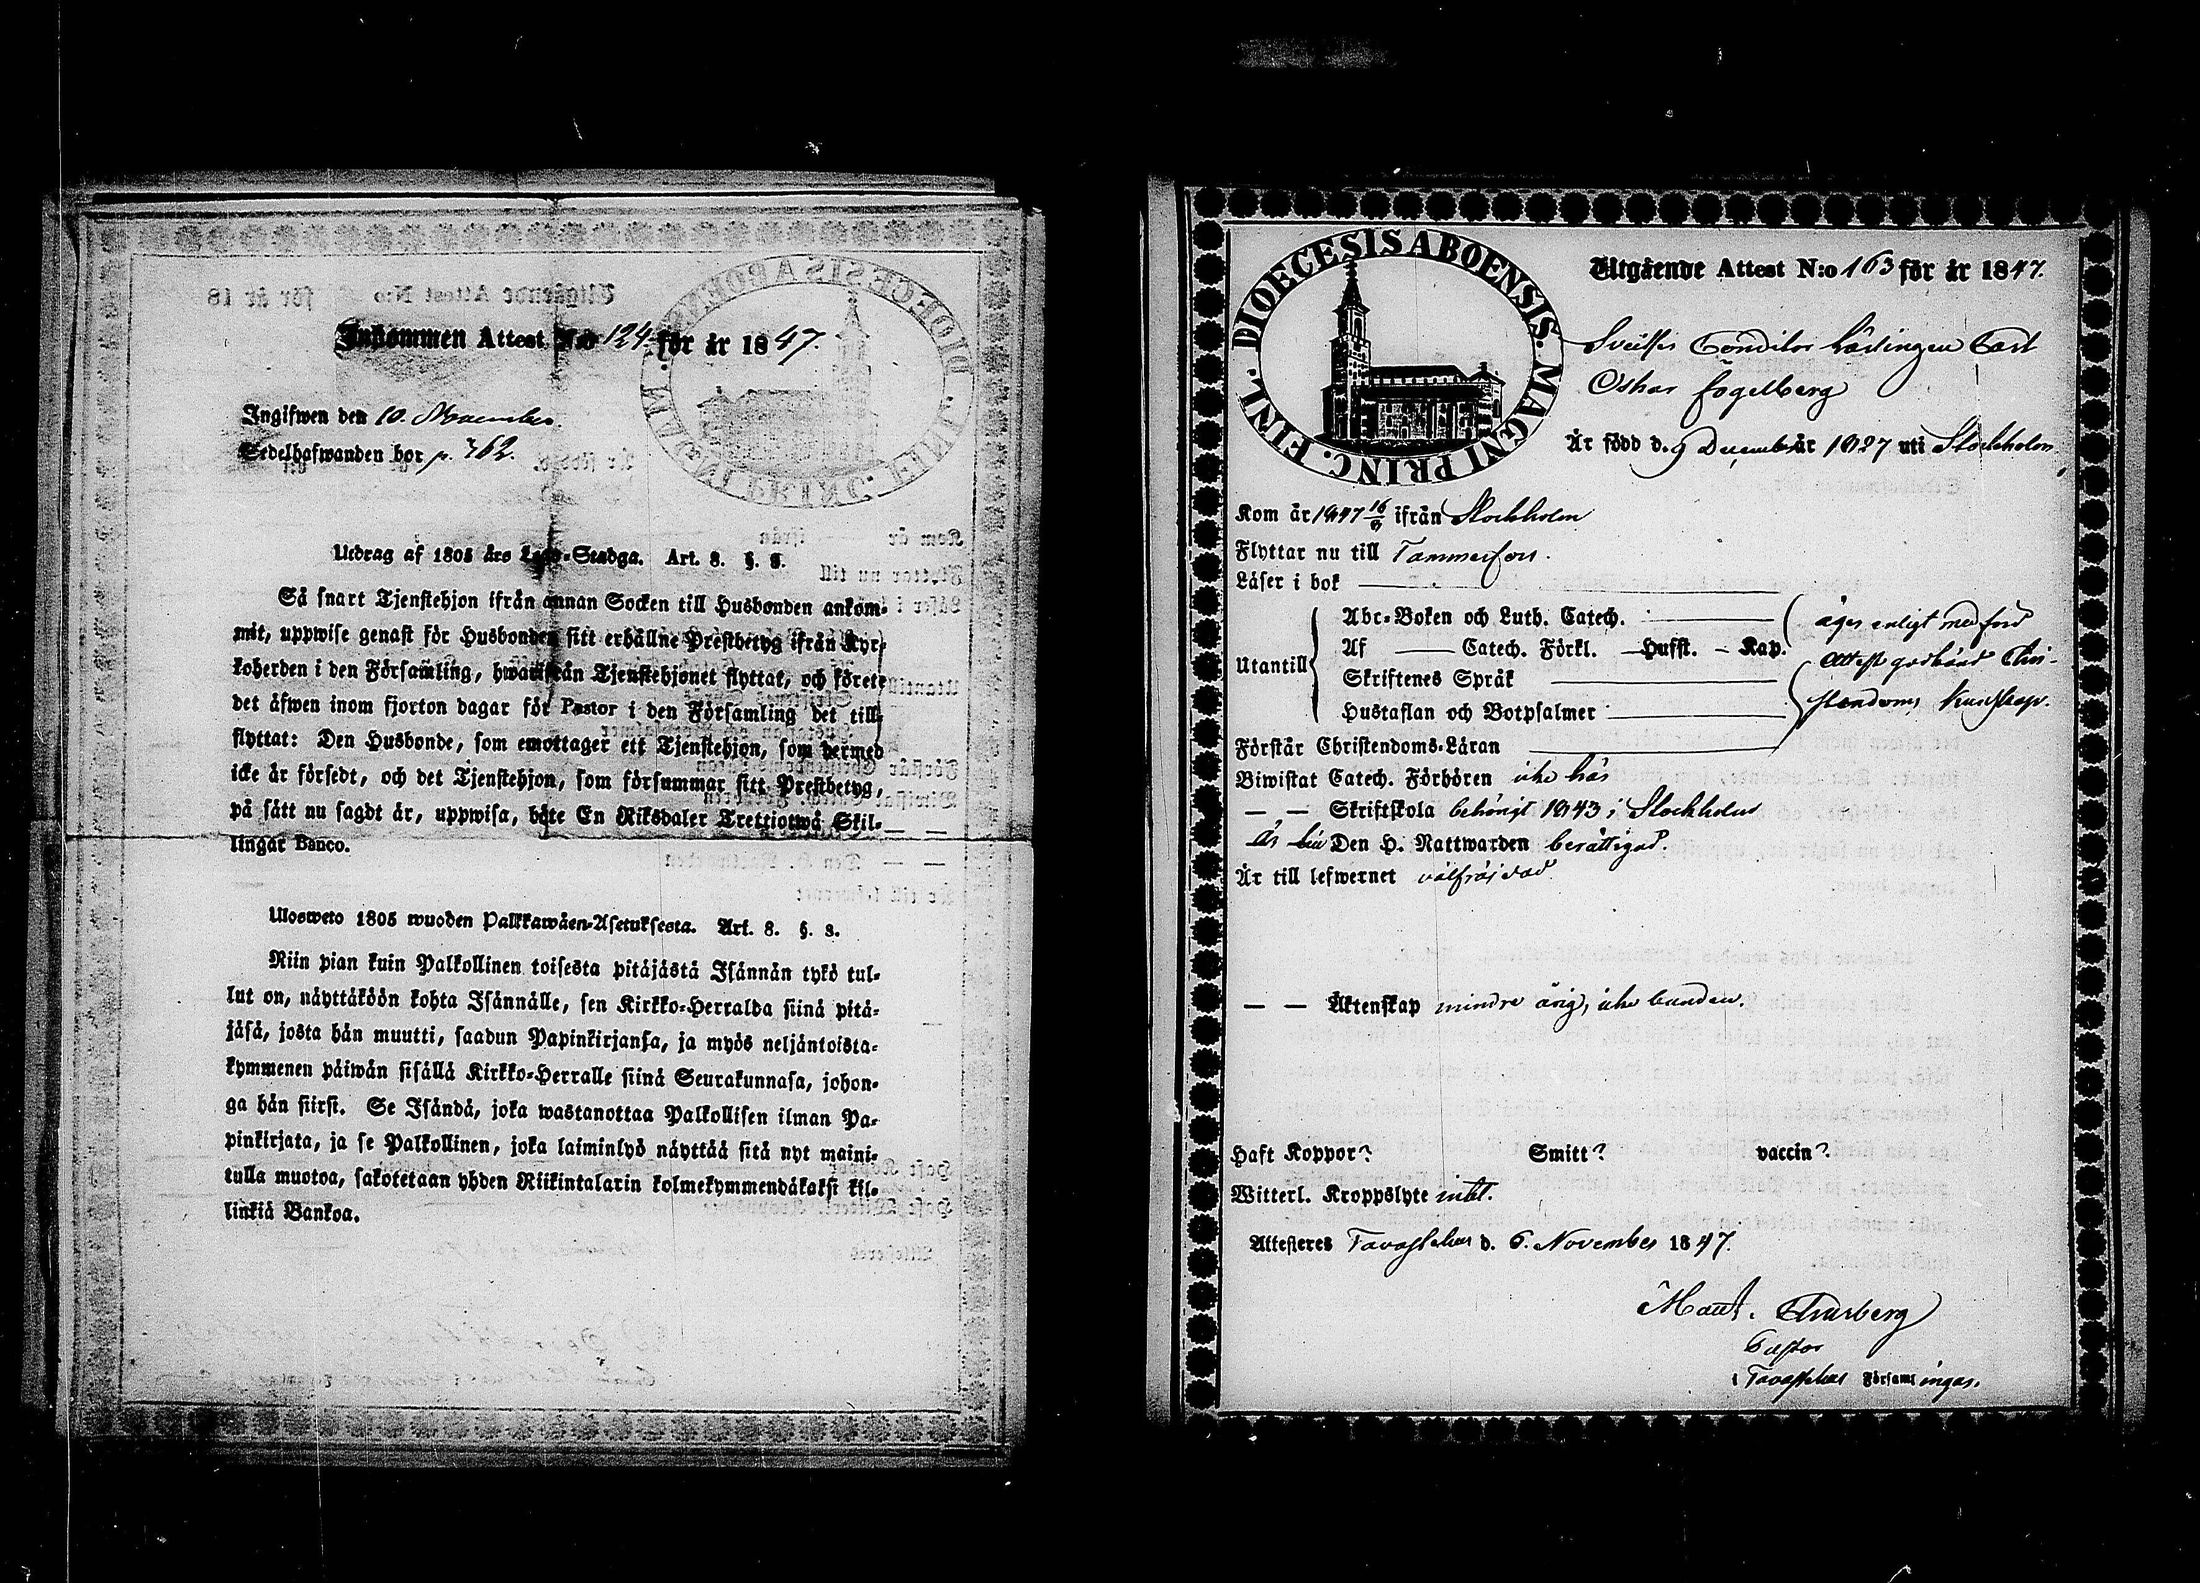 Inkommen Attest N:o 124. för år 1847.
Ingifwen den 10. November.
Sedelhafwanden bor p. 762.
Utdrag af 1805 års Lego-Stadga. Art. 8. §. 8.
Så snart Tjenstehjon ifrån annan Socken till Husbonden ankom-
mit, uppwise genast för Husbonden sitt erhållne Prestbetyg ifrån Kyr-
koherden i den Församling, hwarifrån Tjenstehjonet flyttat, och förete
det äfwen inom fjorton dagar för Pastor i den Församling det till-
flyttat: Den Husbonde, som emottager ett Tjenstehjon, som dermed
icke är försedt, och det Tjenstehjon, som försummar sitt Prestbetyg,
på sätt nu sagdt är, uppwisa, böte En Riksdaler Trettiotwå Skil-
lingar Banco.
Ulosweto 1805 wuoden Palkkawäen-Asetuksesta. Art. 8. §. 8.
Niin pian kuin Palkollinen toisesta pitäjästä Isännän tykö tul-
lut on, näyttäköön kohta Isännälle, sen Kirkko-Herralda siinä pitä-
jäsä, josta hän muutti, saadun Papinkirjansa, ja myös neljäntoista-
kymmenen päiwän sisällä Kirkko-Herralle siinä Seurakunnasa, johon-
ga hän siirst. Se Isändä, joka wastanottaa Palkollisen ilman Pa-
pinkirjata, ja se Palkollinen, joka laiminlyö näyttää sitä nyt maini-
tulla muotoa, sakotetaan yhden Riikintalarin kolmekymmendäkaksi kil-
linkiä Bankoa.
DIOECESIS ABOENSIS. MAGNI PRINC. FINL.
Utgående Attest N:o 163 för år 1847.
Conditor Lärlingen Carl
Oskar Fogelberg
Är född d. 9 December år 1827 uti Stockholm,
Kom år 1847 16/9 ifrån Stockholm
Flyttar nu till Tammerfors.
Läser i bok
Utantill
Abc-Boken och Luth. Catech.
Af Catech. Förkl. Hufst. Kap.
Skriftenes Språk
Hustaflan och Botpsalmer
äger enligt medförd
attest godkänd Chri-
stendoms kunskap.
Förstår Christendoms-Läran
Biwistat Catech. Förhören icke här
— — Skriftskola behörigt 1843 i Stockholm
är Den H. Nattwarden berättigad.
Är till lefwernet välfräjdad
— — Äktenskap minderårig, icke bunden.
Haft Koppor? Smitt? vaccin?
Witterl. Kroppslyte intet.
Attesteres Tavastehus d. 6. November 1847.
Pastor
i Tavastehus Församlingar.